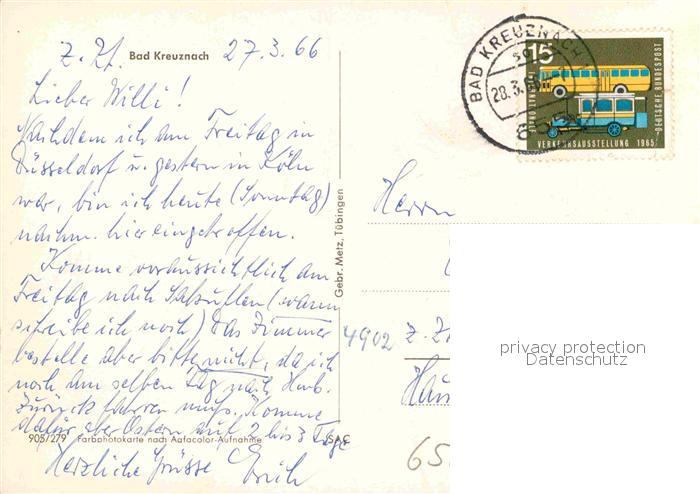 z. Zt. Bad Kreuznach 27.3.66
Lieber Willi!
Nachdem ich am Freitag in
Düsseldorf u. gestern in Köln
war, bin ich heute (Sonntag)
nachm. hier eingetroffen.
Komme voraussichtlich am
Freitag nach Salzuflen (wann
schreibe ich noch) Das Zimmer
bestelle aber bitte nicht, da ich
noch am selben Tag nach Hmb.
zurück fahren muß. Komme
dafür aber Ostern auf 2 bis 3 Tage
905/279 Farbphotokarte nach Agfacolor-Aufnahme SAC
Herzliche Grüsse Erich
Gebr. Metz, Tübingen
BAD KREUZNACH
28.3.66
15
DEUTSCHE BUNDESPOST
VERKEHRSAUSSTELLUNG 1965
Herrn
4902 z. Zt
Hau
65
privacy protection
Datenschutz